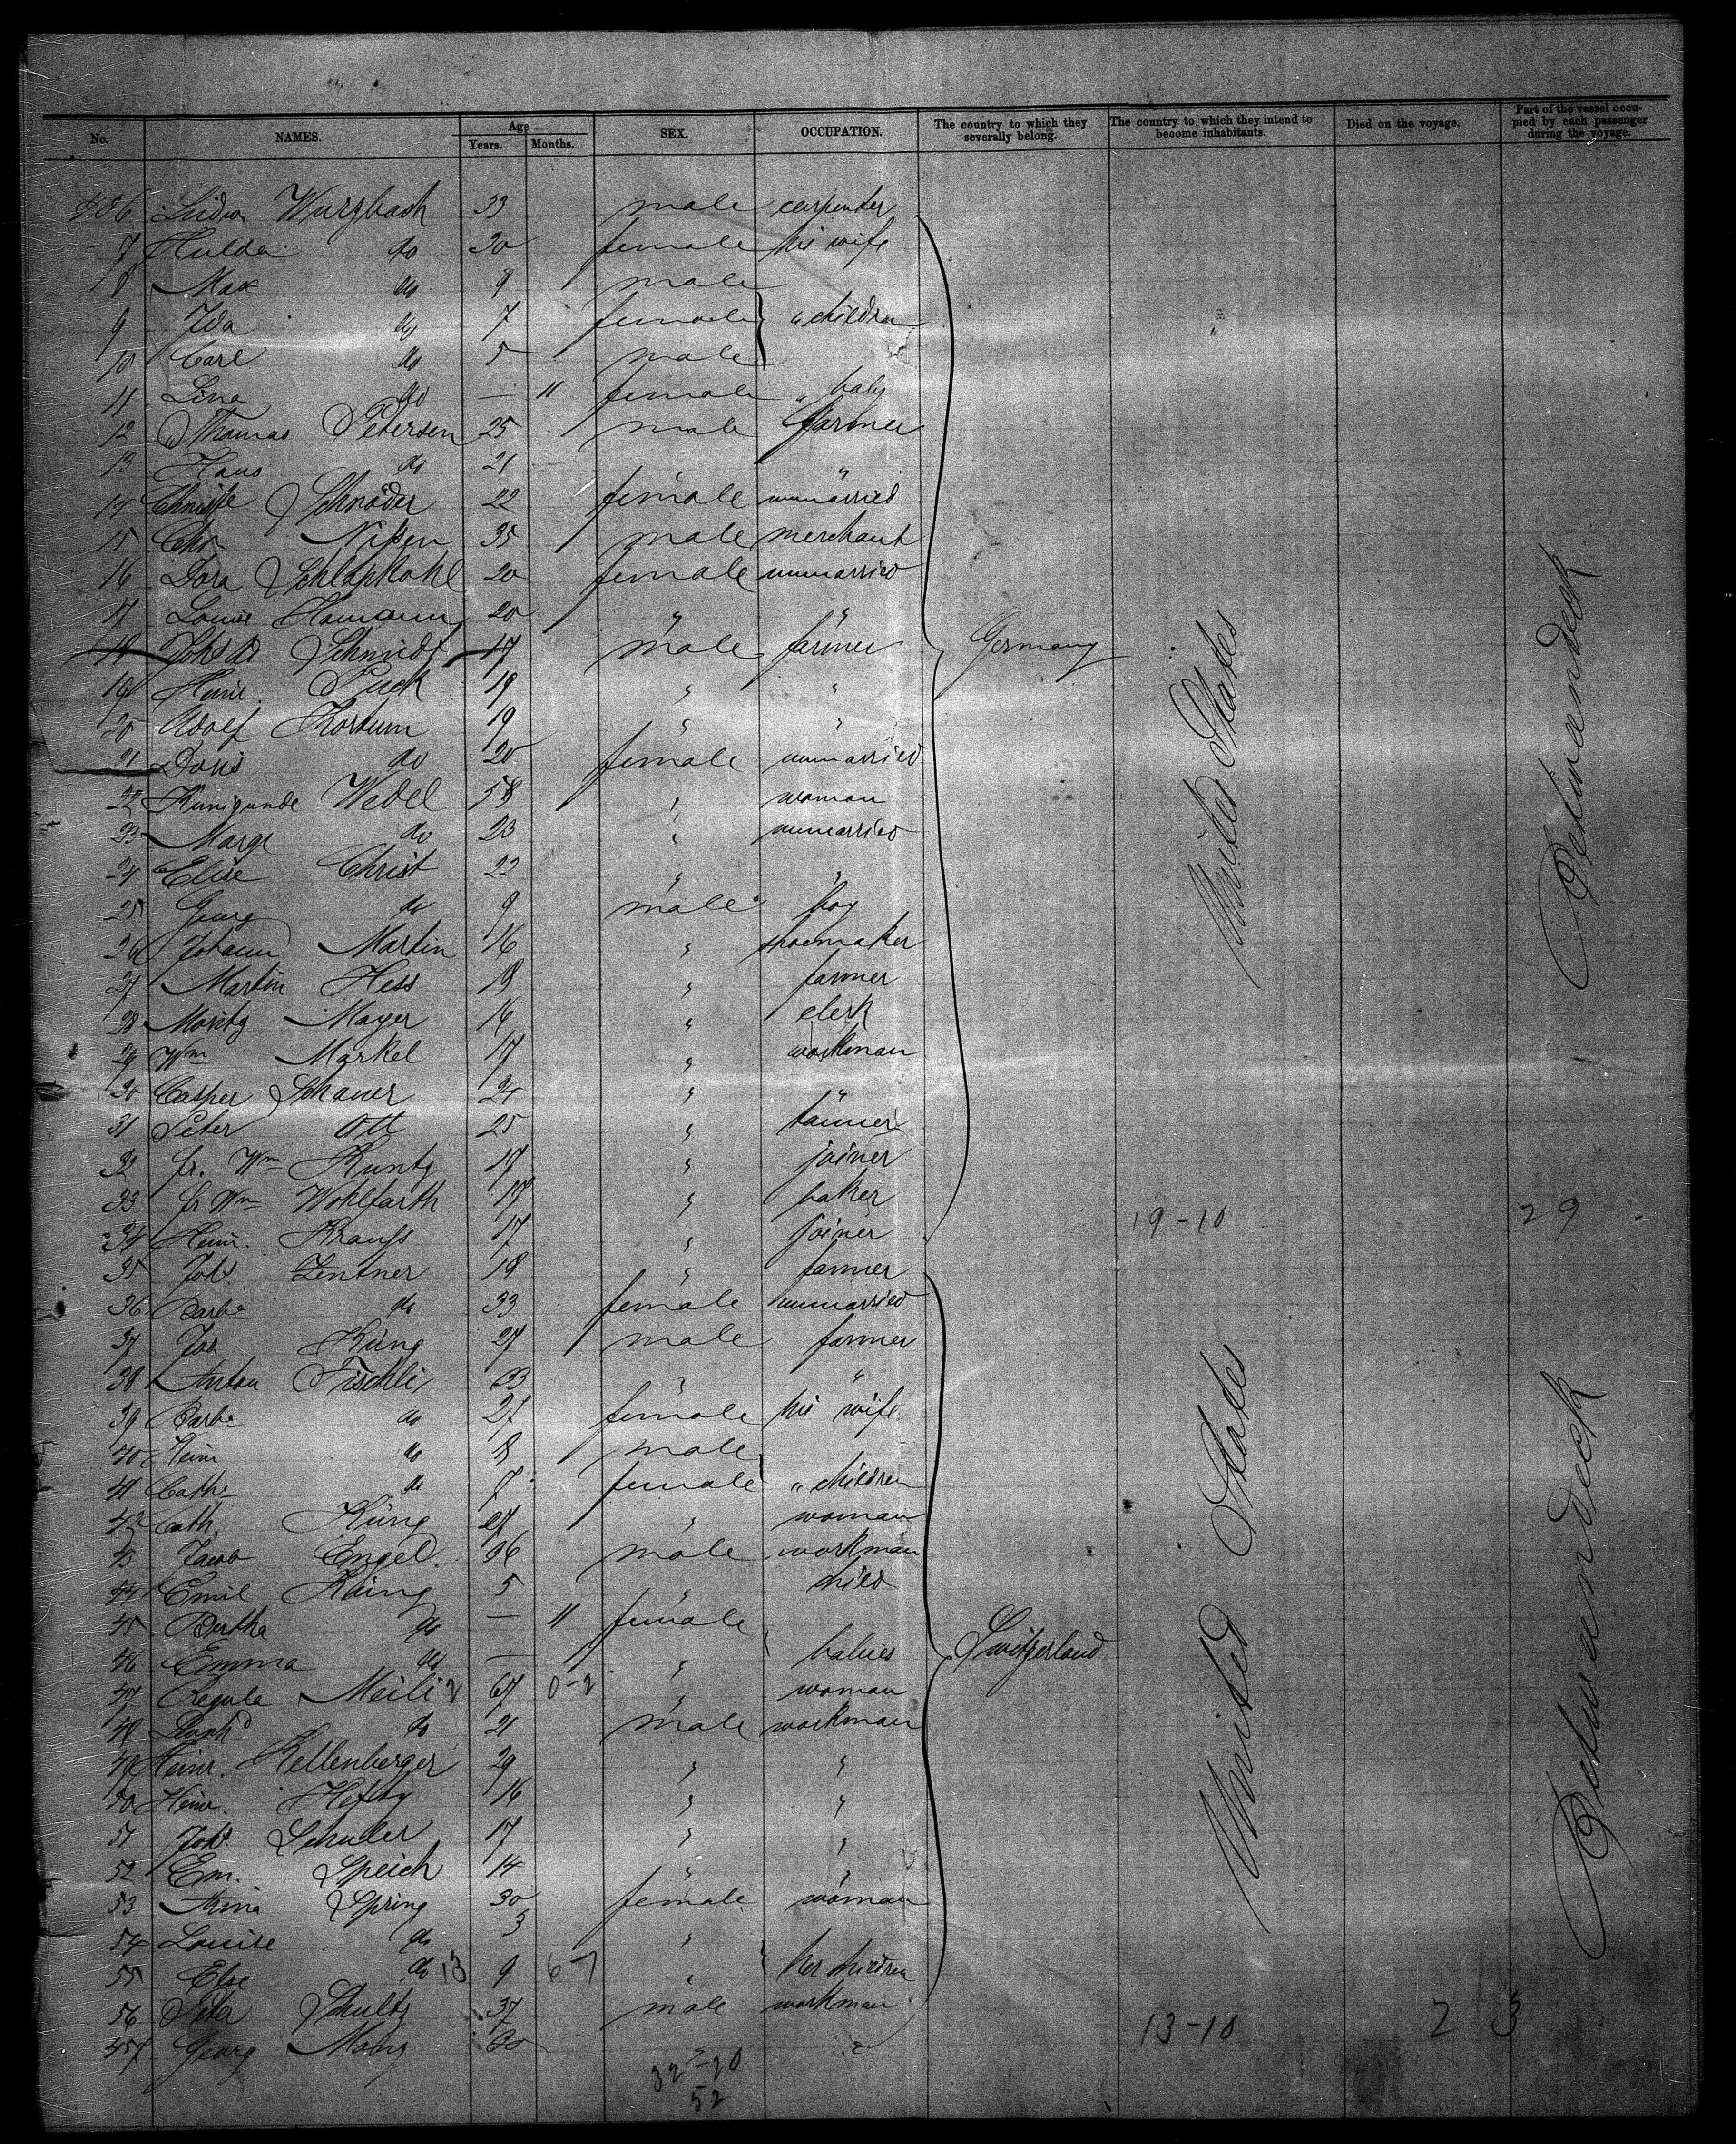 No. NAMES. Age Years. Months. SEX. OCCUPATION. The country to which they severally belong. The country to which they intend to become inhabitants. Died on the voyage. Part of the vessel occupied by each passenger during the voyage.
406 Ludw Wurzbach 33 male carpenter
7 Hulda do 30 female his wife
8 Max do 9 male
9 Ida do 7 female " children
10 Carl do 5 male
11 Lina do — 11 female " baby
12 Thomas Petersen 25 male farmer
13 Hans do 21 " "
14 Christe Schröder 22 female unmarried
15 Chr Nissen 35 male merchant
16 Dora Schlapkohl 20 female unmarried
17 Louise Hamann 20 " "
18 Joh's Schmidt 17 male farmer Germany United States Between deck
19 Heinr. Puck 19 " "
20 Adolf Kortum 19 " "
21 Doris do 20 female unmarried
22 Kunigunde Wedel 58 " woman
23 Margr do 23 " unmarried
24 Elise Christ 22 " "
25 Georg do 9 male boy
26 Johann Martin 16 " shoemaker
27 Martin Hess 19 " farmer
28 Moritz Mayer 16 " clerk
29 Wm Markel 17 " workman
30 Casper Schauer 24 " "
31 Peter Ott 25 " tanner
32 fr. Wm Kuntz 17 " joiner
33 fr Wm Wohlfarth 17 " baker
34 Heinr. Krauss 17 " joiner 19-10 29
35 Joh's. Zentner 18 " farmer
36 Barb'a do 33 female unmarried
37 Jos Küng 27 male farmer
38 Anton Fischli 33 " "
39 Barb'a do 27 female his wife
40 Heinr do 8 male
41 Cath'a do 7 female " children
42 Cath. Küng 27 " woman
43 Jacob Engel 36 male workman
44 Emil Küng 5 " child
45 Bertha do — 11 female
46 Emma do — " babies Switzerland United States Between deck
47 Regula Meili 2 67 0-2 " woman
48 do 21 male workman
49 Heinr. Kellenberger 29 " "
50 Heinr. Hefty 16 " "
51 Joh's. Schuler 17 " "
52 Em. Speich 14 " "
53 Anna Spring 30 female woman
54 Louise do 3 "
55 Elise do 13 9 6-7 " her children
56 Peter Schultz 37 male workman 13-10 2 3
457 Georg 30 " "
32-20
52